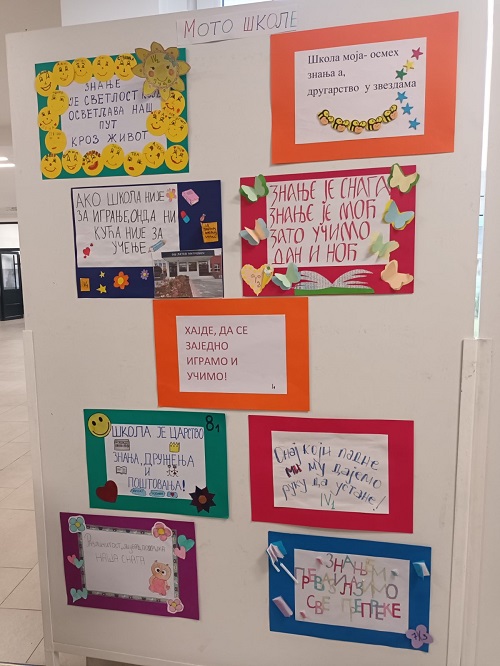 МОТО ШКОЛЕ
ЗНАЊЕ
ЈЕ СВЕТЛОСТ КОЈА
ОСВЕТЉАВА НАШ
ПУТ
КРОЗ ЖИВОТ
Школа моја- осмех
знања а,
другарство у звездама
АКО ШКОЛА НИЈЕ
ЗА ИГРАЊЕ, ОНДА НИ
КУЋА НИЈЕ ЗА
УЧЕЊЕ
ЗНАЊЕ ЈЕ СНАГА
ЗНАЊЕ ЈЕ МОЋ
ЗАТО УЧИМО
ДАН И НОЋ
ХАЈДЕ, ДА СЕ
ЗАЈЕДНО
ИГРАМО И
УЧИМО!
8₁
ШКОЛА ЈЕ ЦАРСТВО
ЗНАЊА, ДРУЖЕЊА
И
ПОШТОВАЊА!
Онај који падне
ми му дајемо
руку да устане!
НАША СНАГА
ЗНАЊЕМ
ПРЕВАЗИЛАЗИМО
СВЕ ПРЕПРЕКЕ